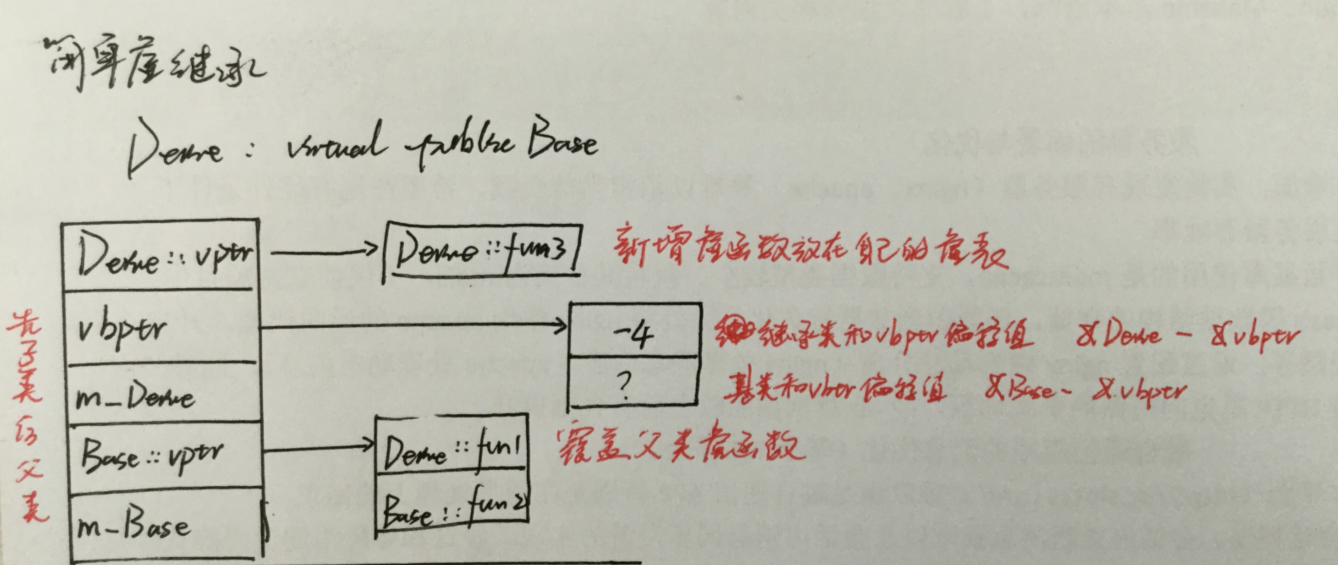 简单虚继承
Derive : virtual public Base
Derive::vptr
Derive::fun3
新增虚函数放在自己的虚表
vbptr
-4
继承类和vbptr偏移值 &Derive - &vbptr
m_Derive
?
基类和vbtr偏移值 &Base - &vbptr
Base::vptr
Derive::fun1
覆盖父类虚函数
Base::fun2
m_Base
先子类后父类